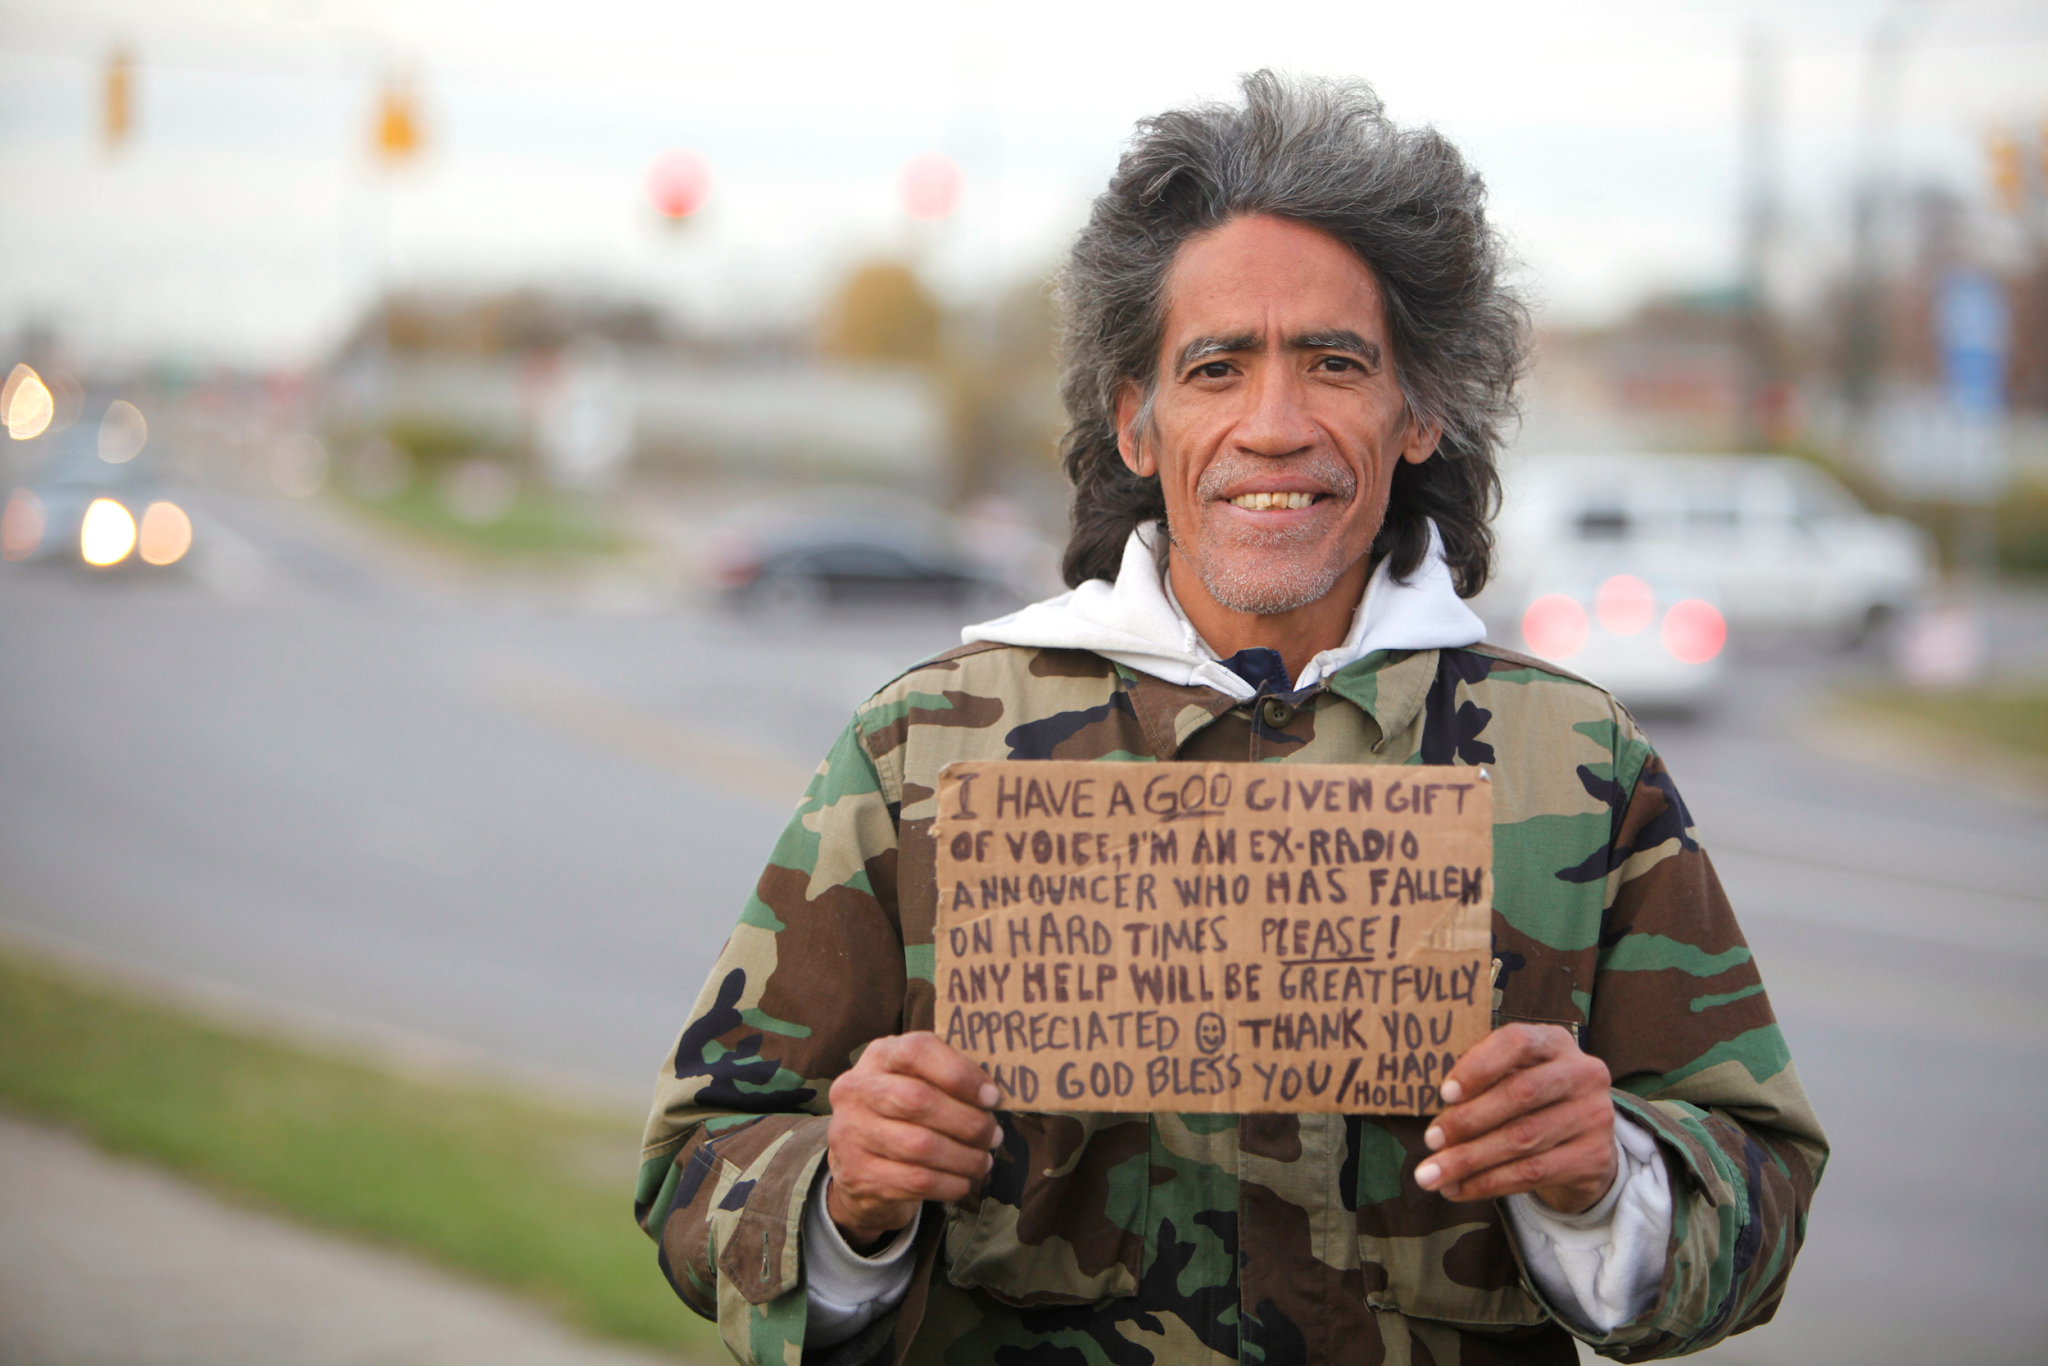 I HAVE A GOD GIVEN GIFT
OF VOICE, I'M AN EX-RADIO
ANNOUNCER WHO HAS FALLEN
ON HARD TIMES PLEASE!
ANY HELP WILL BE GREATFULLY
APPRECIATED THANK YOU
AND GOD BLESS YOU/